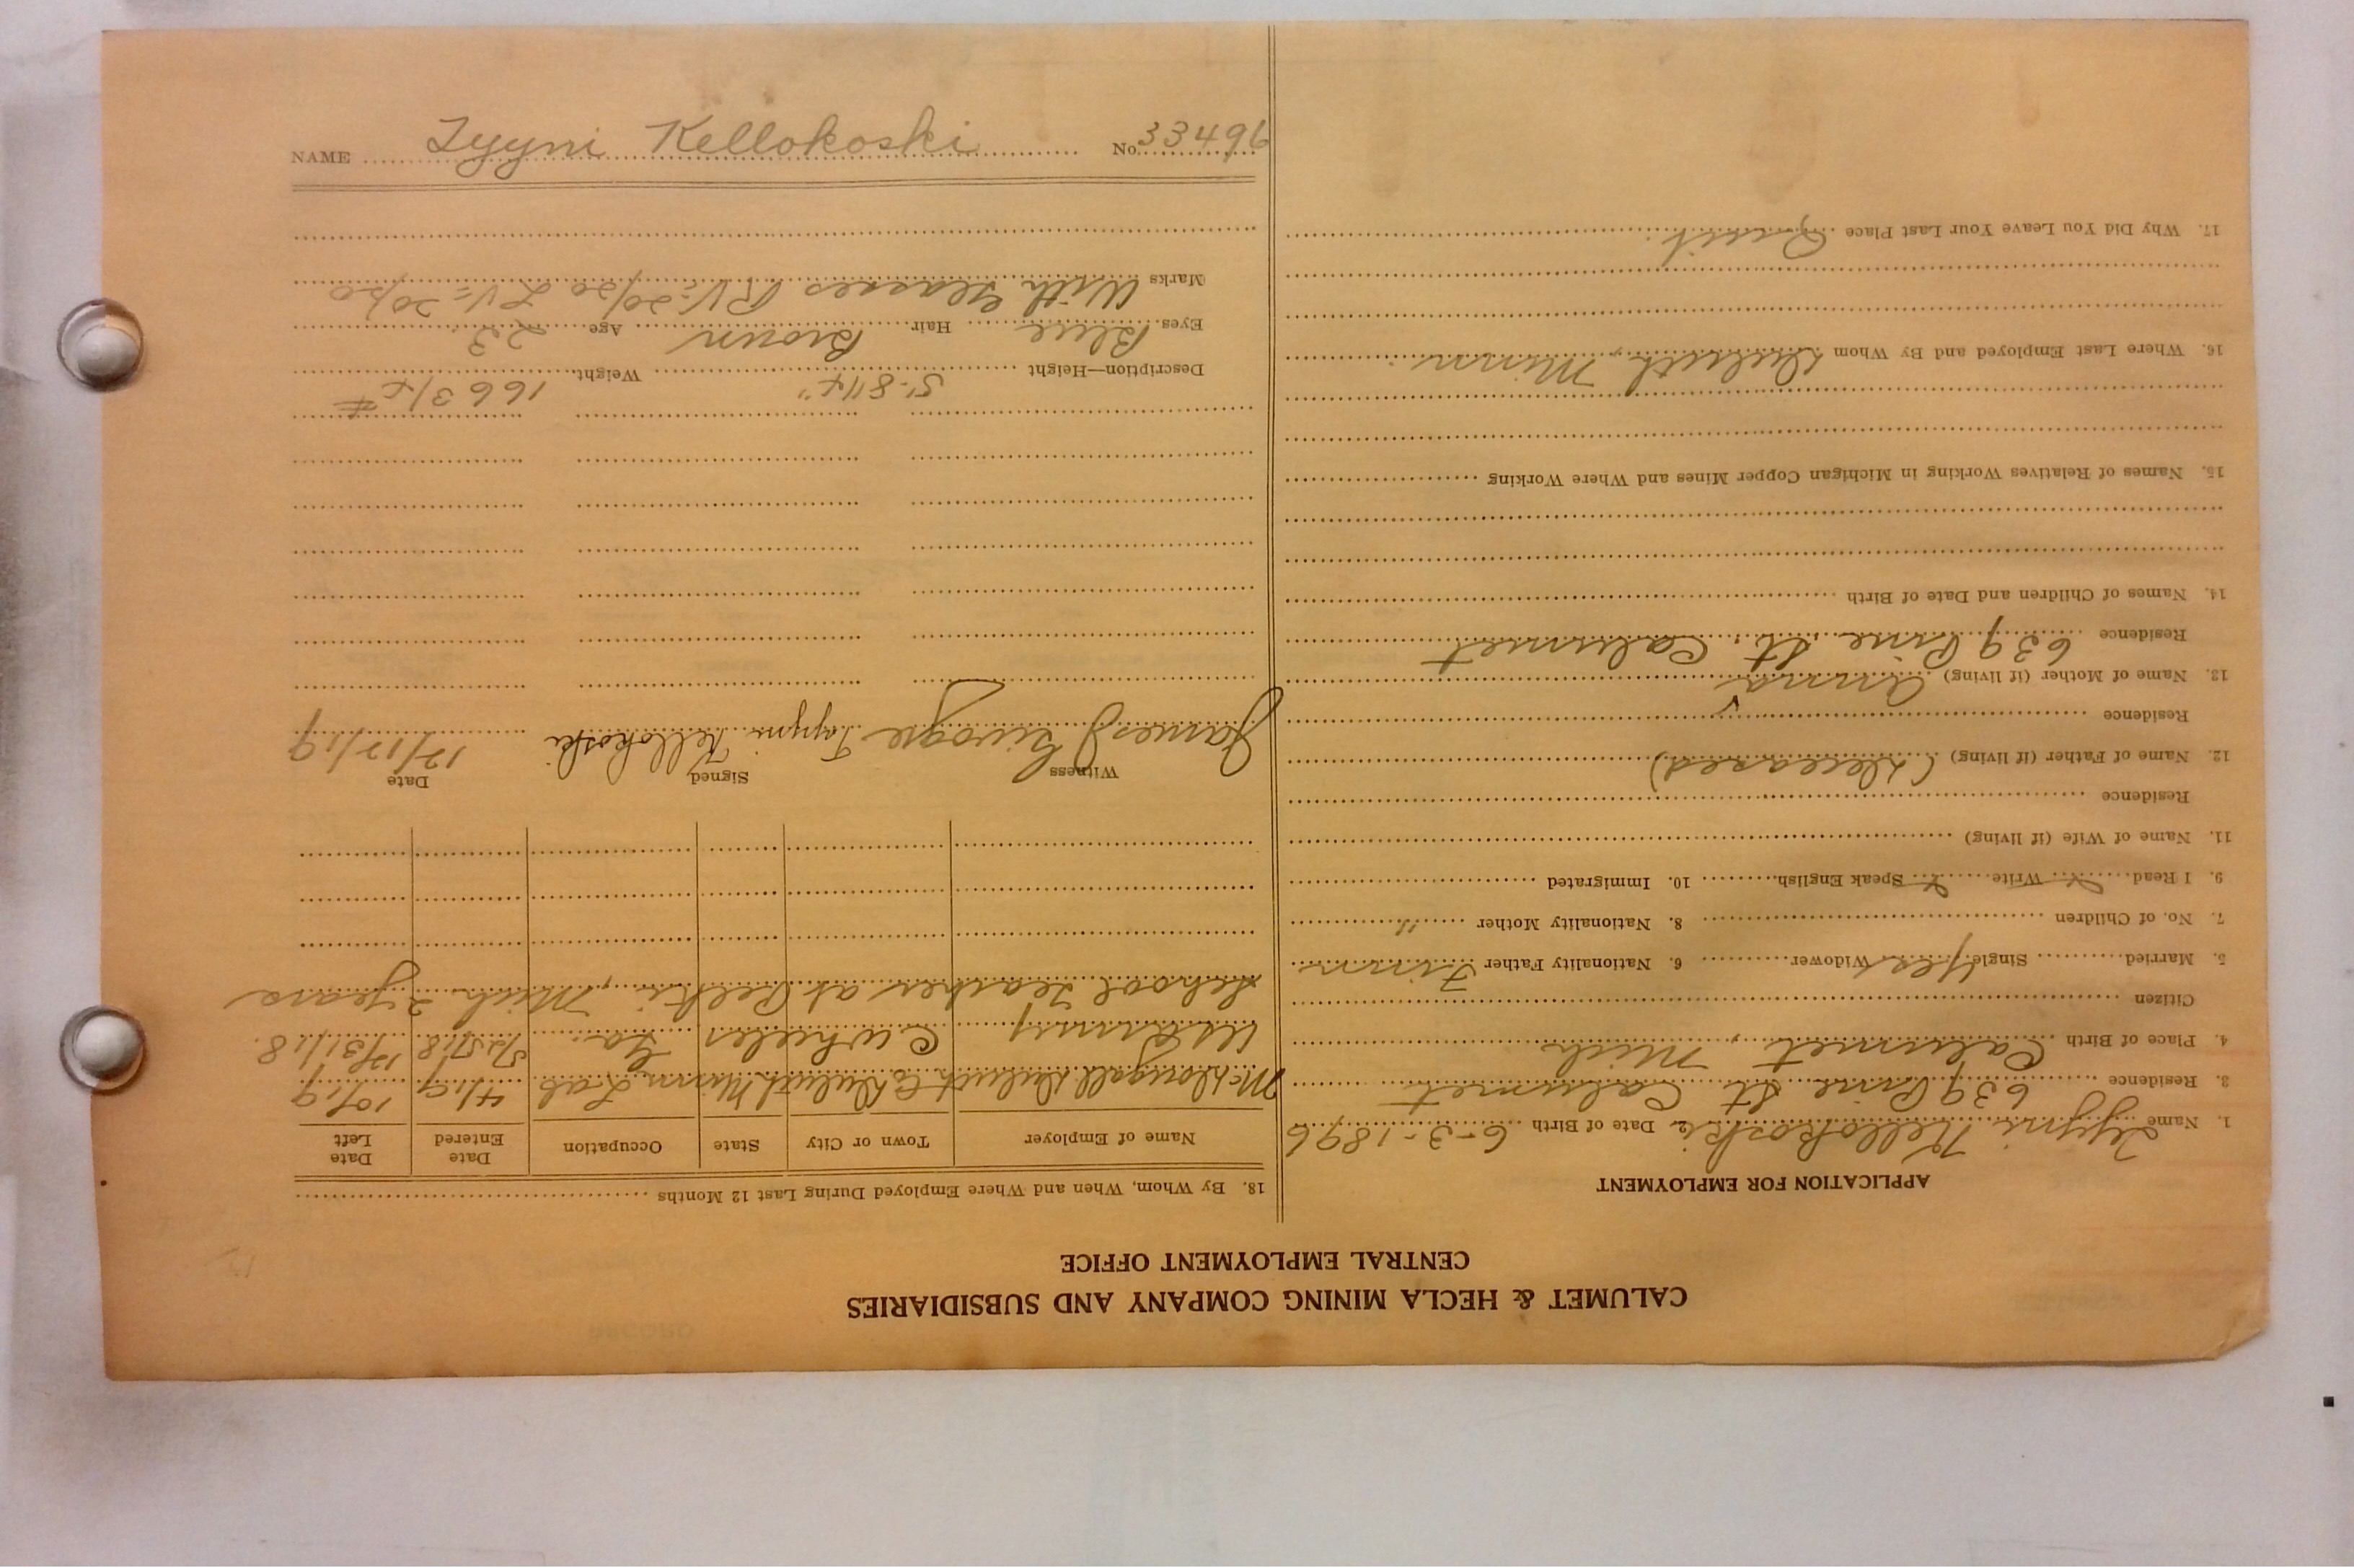 CALUMET & HECLA MINING COMPANY AND SUBSIDIARIES
CENTRAL EMPLOYMENT OFFICE
APPLICATION FOR EMPLOYMENT
1. Name Tyyni Kellokoski 2. Date of Birth 6-3-1896
3. Residence 639 Pine St Calumet
4. Place of Birth Calumet, Mich
Citizen
5. Married Single Yes Widower 6. Nationality Father Finn
7. No. of Children 8. Nationality Mother "
9. I Read Write Speak English 10. Immigrated
11. Name of Wife (if living)
Residence
12. Name of Father (if living) (Deceased)
Residence
13. Name of Mother (if living) Anna
Residence 639 Pine St. Calumet
14. Names of Children and Date of Birth
15. Names of Relatives Working in Michigan Copper Mines and Where Working
16. Where Last Employed and By Whom Duluth, Minn.
17. Why Did You Leave Your Last Place Quit.
18. By Whom, When and Where Employed During Last 12 Months
Name of Employer Town or City State Occupation Date Entered Date Left
McDougall Duluth Co Duluth Minn Lab 4/19 10/19
US Army C. Wheeler Ga. 5/25/18 12/31/18.
School Teacher at Pelkie, Mich 2 years
Witness Signed Date
James J Tyyni Kellokoski 12/12/19
Description—Height 5'-8 1/4" Weight 166 3/4 #
Eyes Blue Hair Brown Age 23.
Marks With Glasses RV=20/20 LV=20/20
NAME Tyyni Kellokoski No. 33496